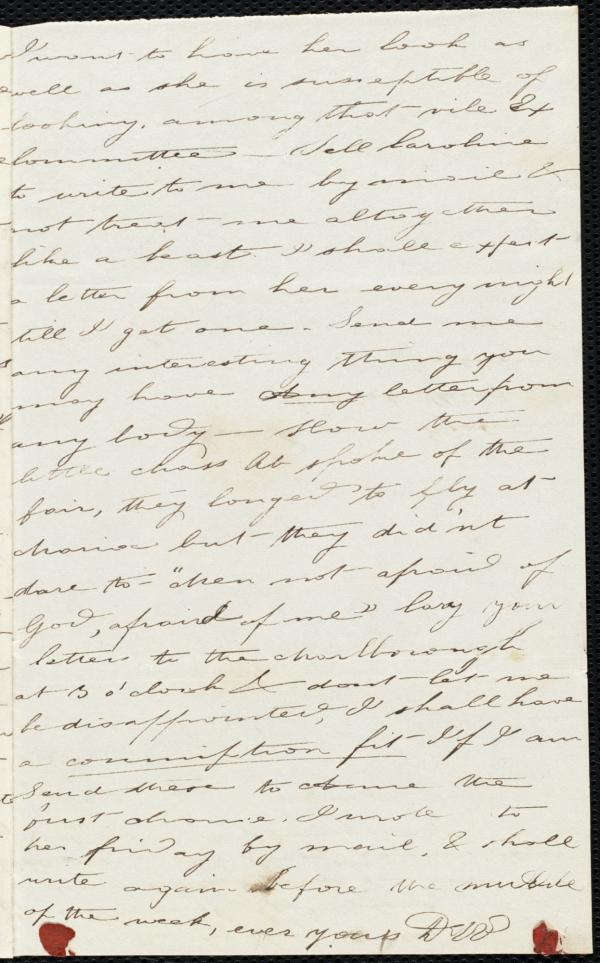 I want to have her look as
well as she is susseptible of
looking, among that vile Ex
Committee — Tell Caroline
to write to me by mail &
not treat me altogether
like a beast. I shall expect
a letter from her every night
till I get one. Send me
any interesting thing you
may have any letter from
any body — How the
little chaps at spoke of the
fair, they longed to fly at
Maria but they did'nt
dare to "Men not afraid of
God, afraid of me" Cary your
letters to the Marlborough
at 3 o'clock & dont let me
be disappointed, I shall have
a conniption fit If I am
Send these to the
first chance. I wrote to
her friday by mail, & shall
write again before the middle
of the week, ever yours DW